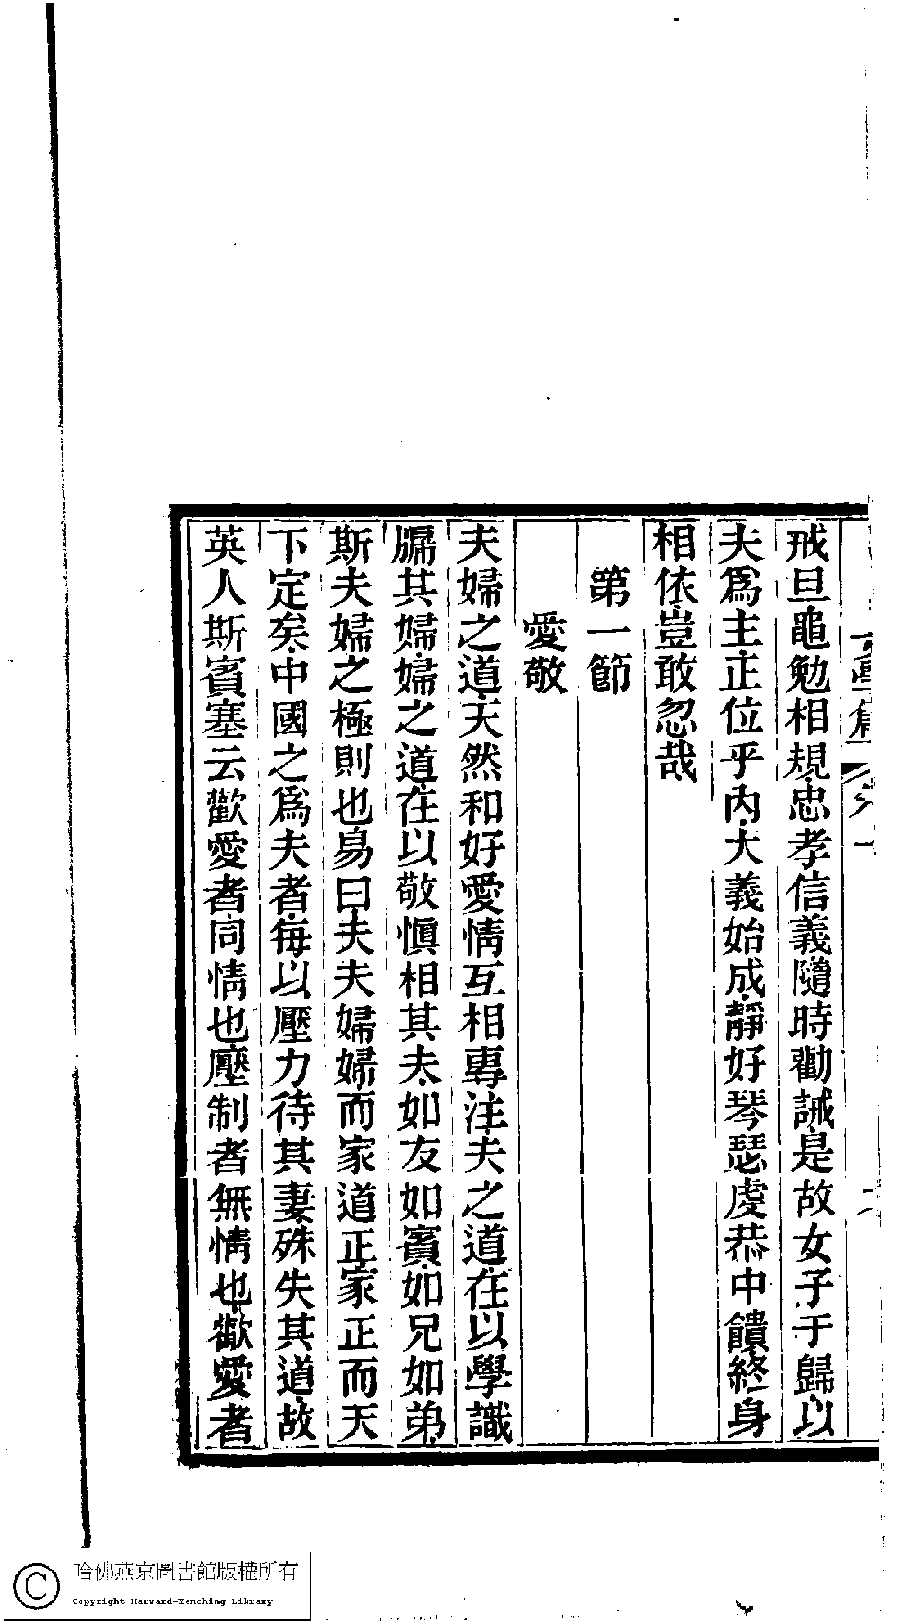 戒旦黽勉相規忠孝信義隨時勸誡是故女子于歸以
夫爲主正位乎內大義始成靜好琴瑟虔恭中饋終身
相依豈敢忽哉
第一節
愛敬
夫婦之道天然和好愛情互相專注夫之道在以學識
牖其婦婦之道在以敬愼相其夫如友如賓如兄如弟
斯夫婦之極則也易曰夫夫婦婦而家道正家正而天
下定矣中國之爲夫者每以壓力待其妻殊失其道故
英人斯賓塞云歡愛者同情也壓制者無情也歡愛者
哈佛燕京圖書館版權所有
Copyright Harvard-Yenching Library